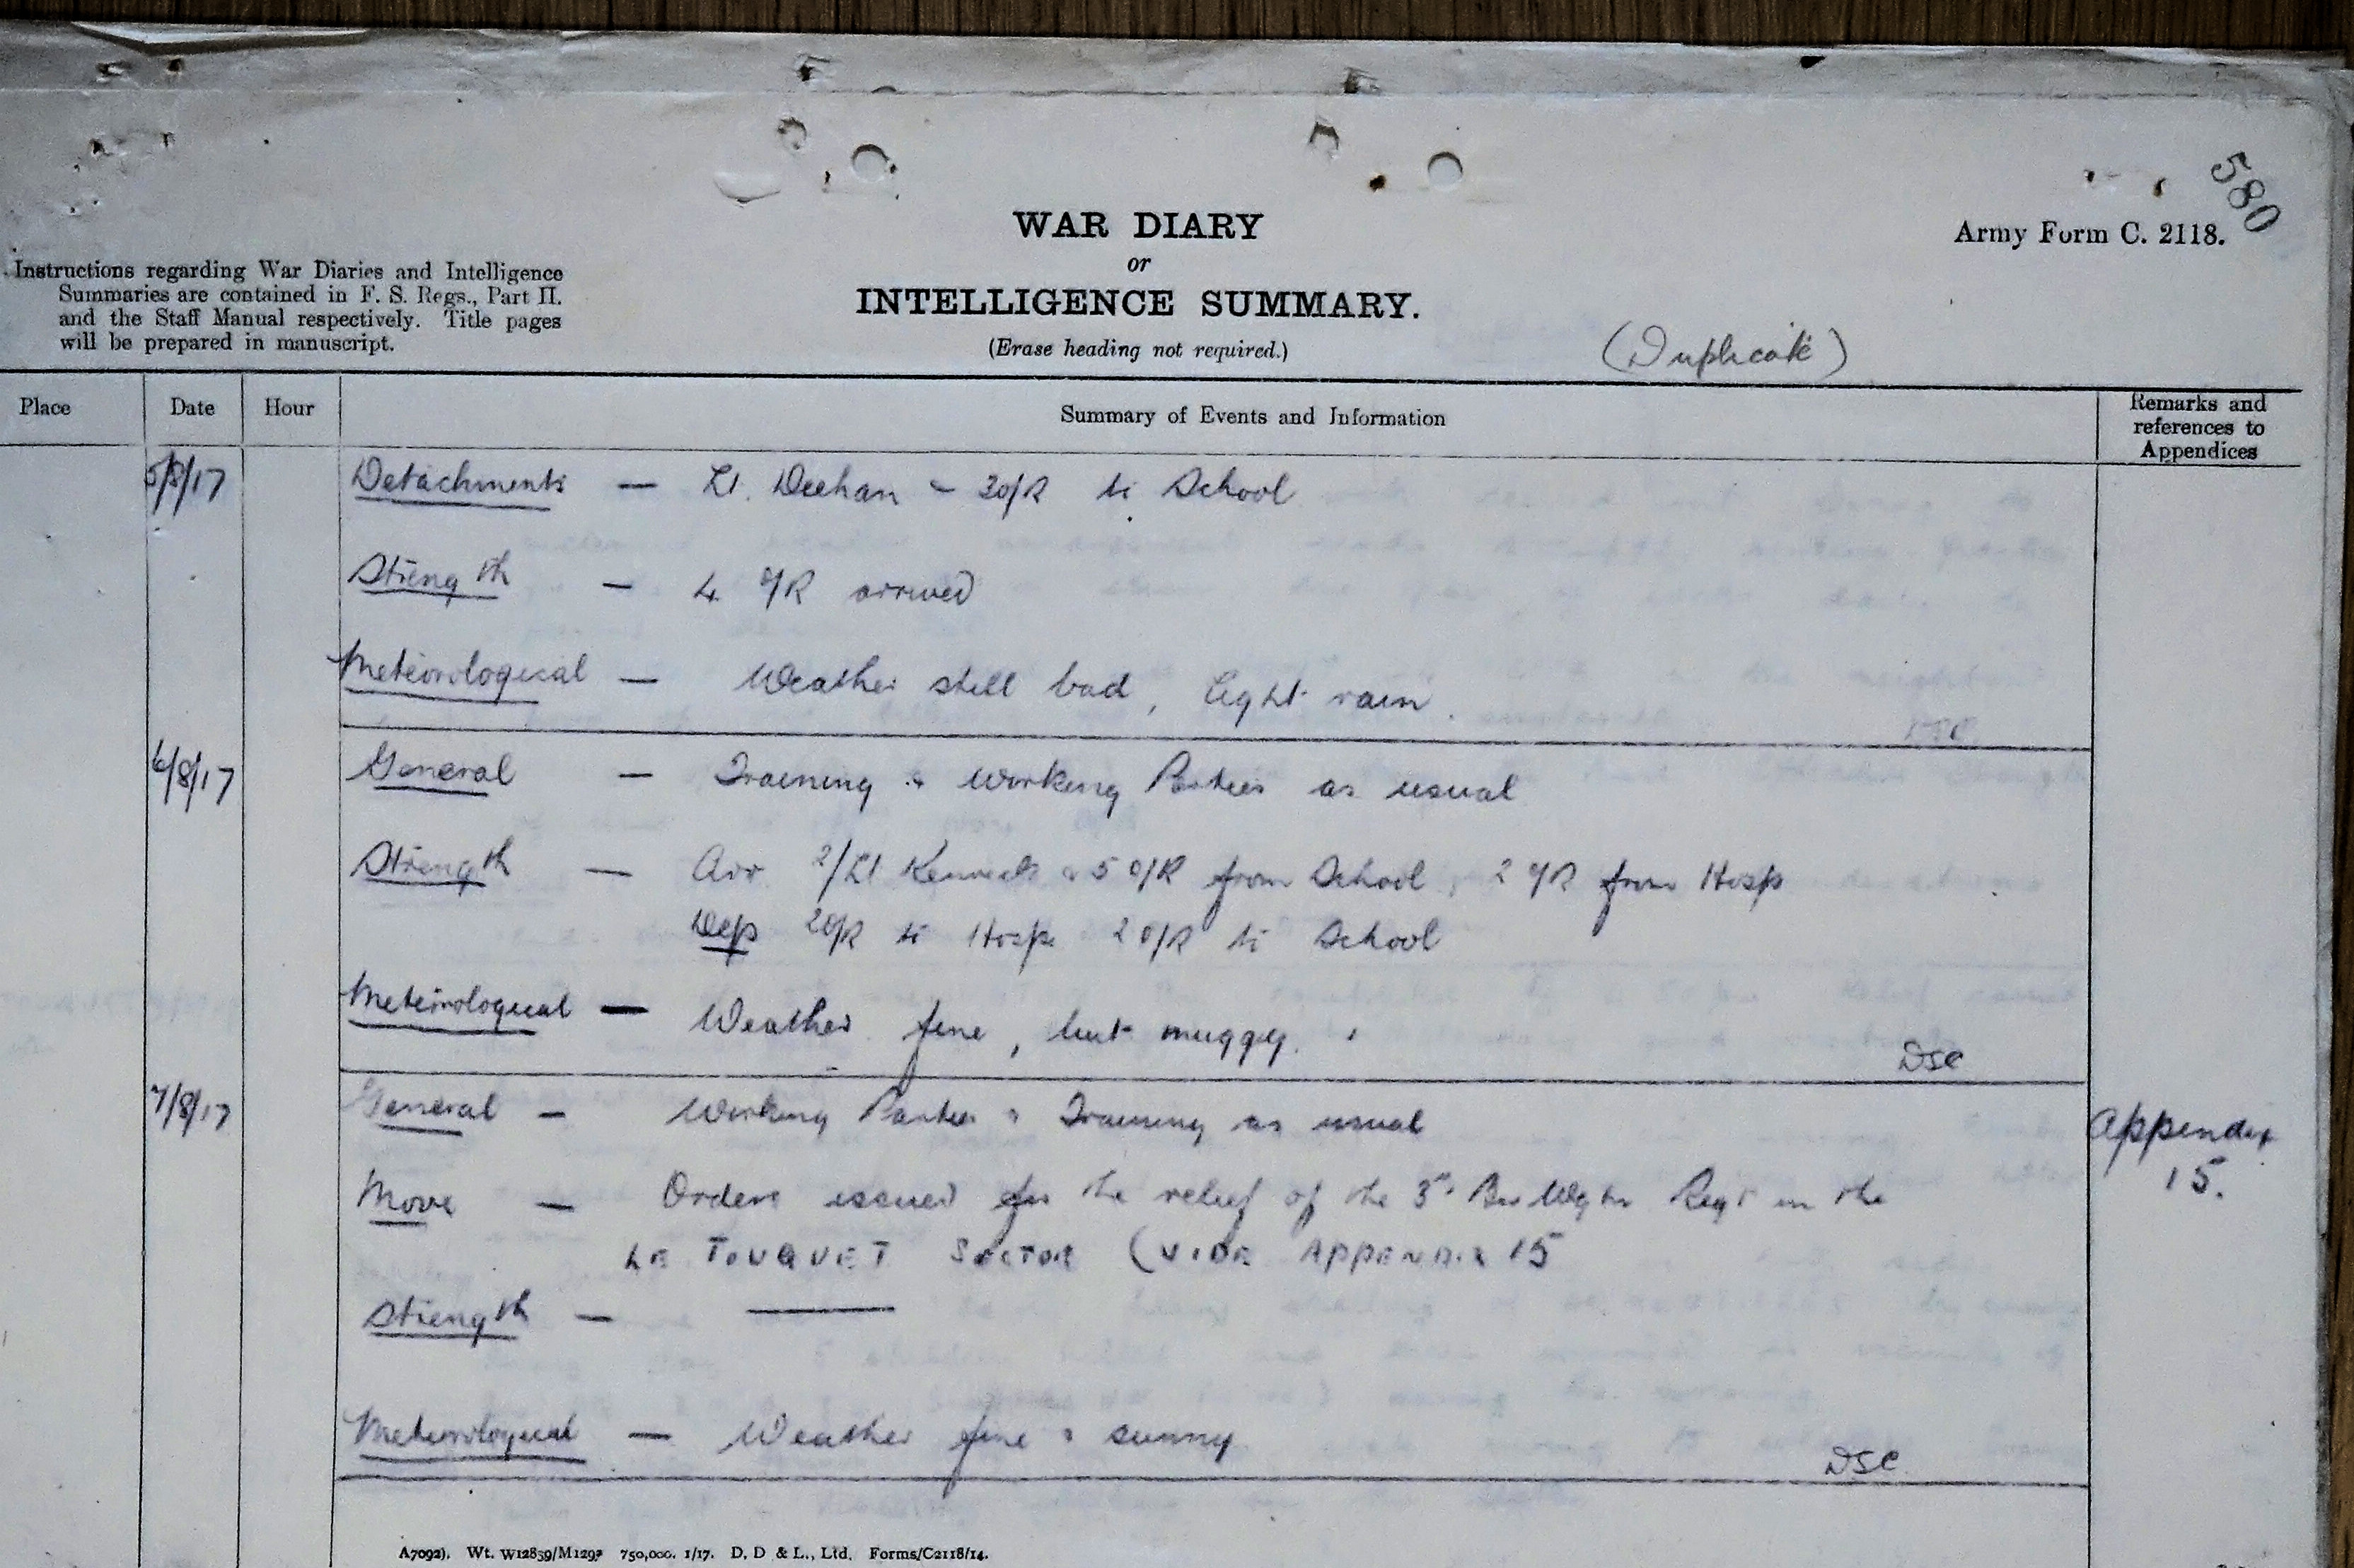 580
WAR DIARY
Army Form C. 2118.
or
Instructions regarding War Diaries and Intelligence
Summaries are contained in F. S. Regs., Part II.
and the Staff Manual respectively. Title pages
will be prepared in manuscript.
INTELLIGENCE SUMMARY.
(Erase heading not required.)
(Duplicate)
Place Date Hour Summary of Events and Information Remarks and references to Appendices
5/8/17 Detachments — Lt. Deehan & 3 o/R to School
Strength — 4 o/R arrived
Meteorological — Weather still bad, light rain.
6/8/17 General — Training & Working Parties as usual
Strength — Arr 2/Lt & 5 o/R from School, 2 o/R from Hosp
Dep 2 o/R to Hosp 2 o/R to School
Meteorological — Weather fine, but muggy.
DSC
7/8/17 General — Working Parties & Training as usual
Appendix
15.
Move — Orders issued for the relief of the 3rd Bn Regt in the
LE TOUQUET SECTOR (VIDE APPENDIX 15
Strength — —
Meteorological — Weather fine & sunny
DSC
A7092). Wt. W12859/M1293 750,000. 1/17. D. D & L., Ltd. Forms/C2118/14.